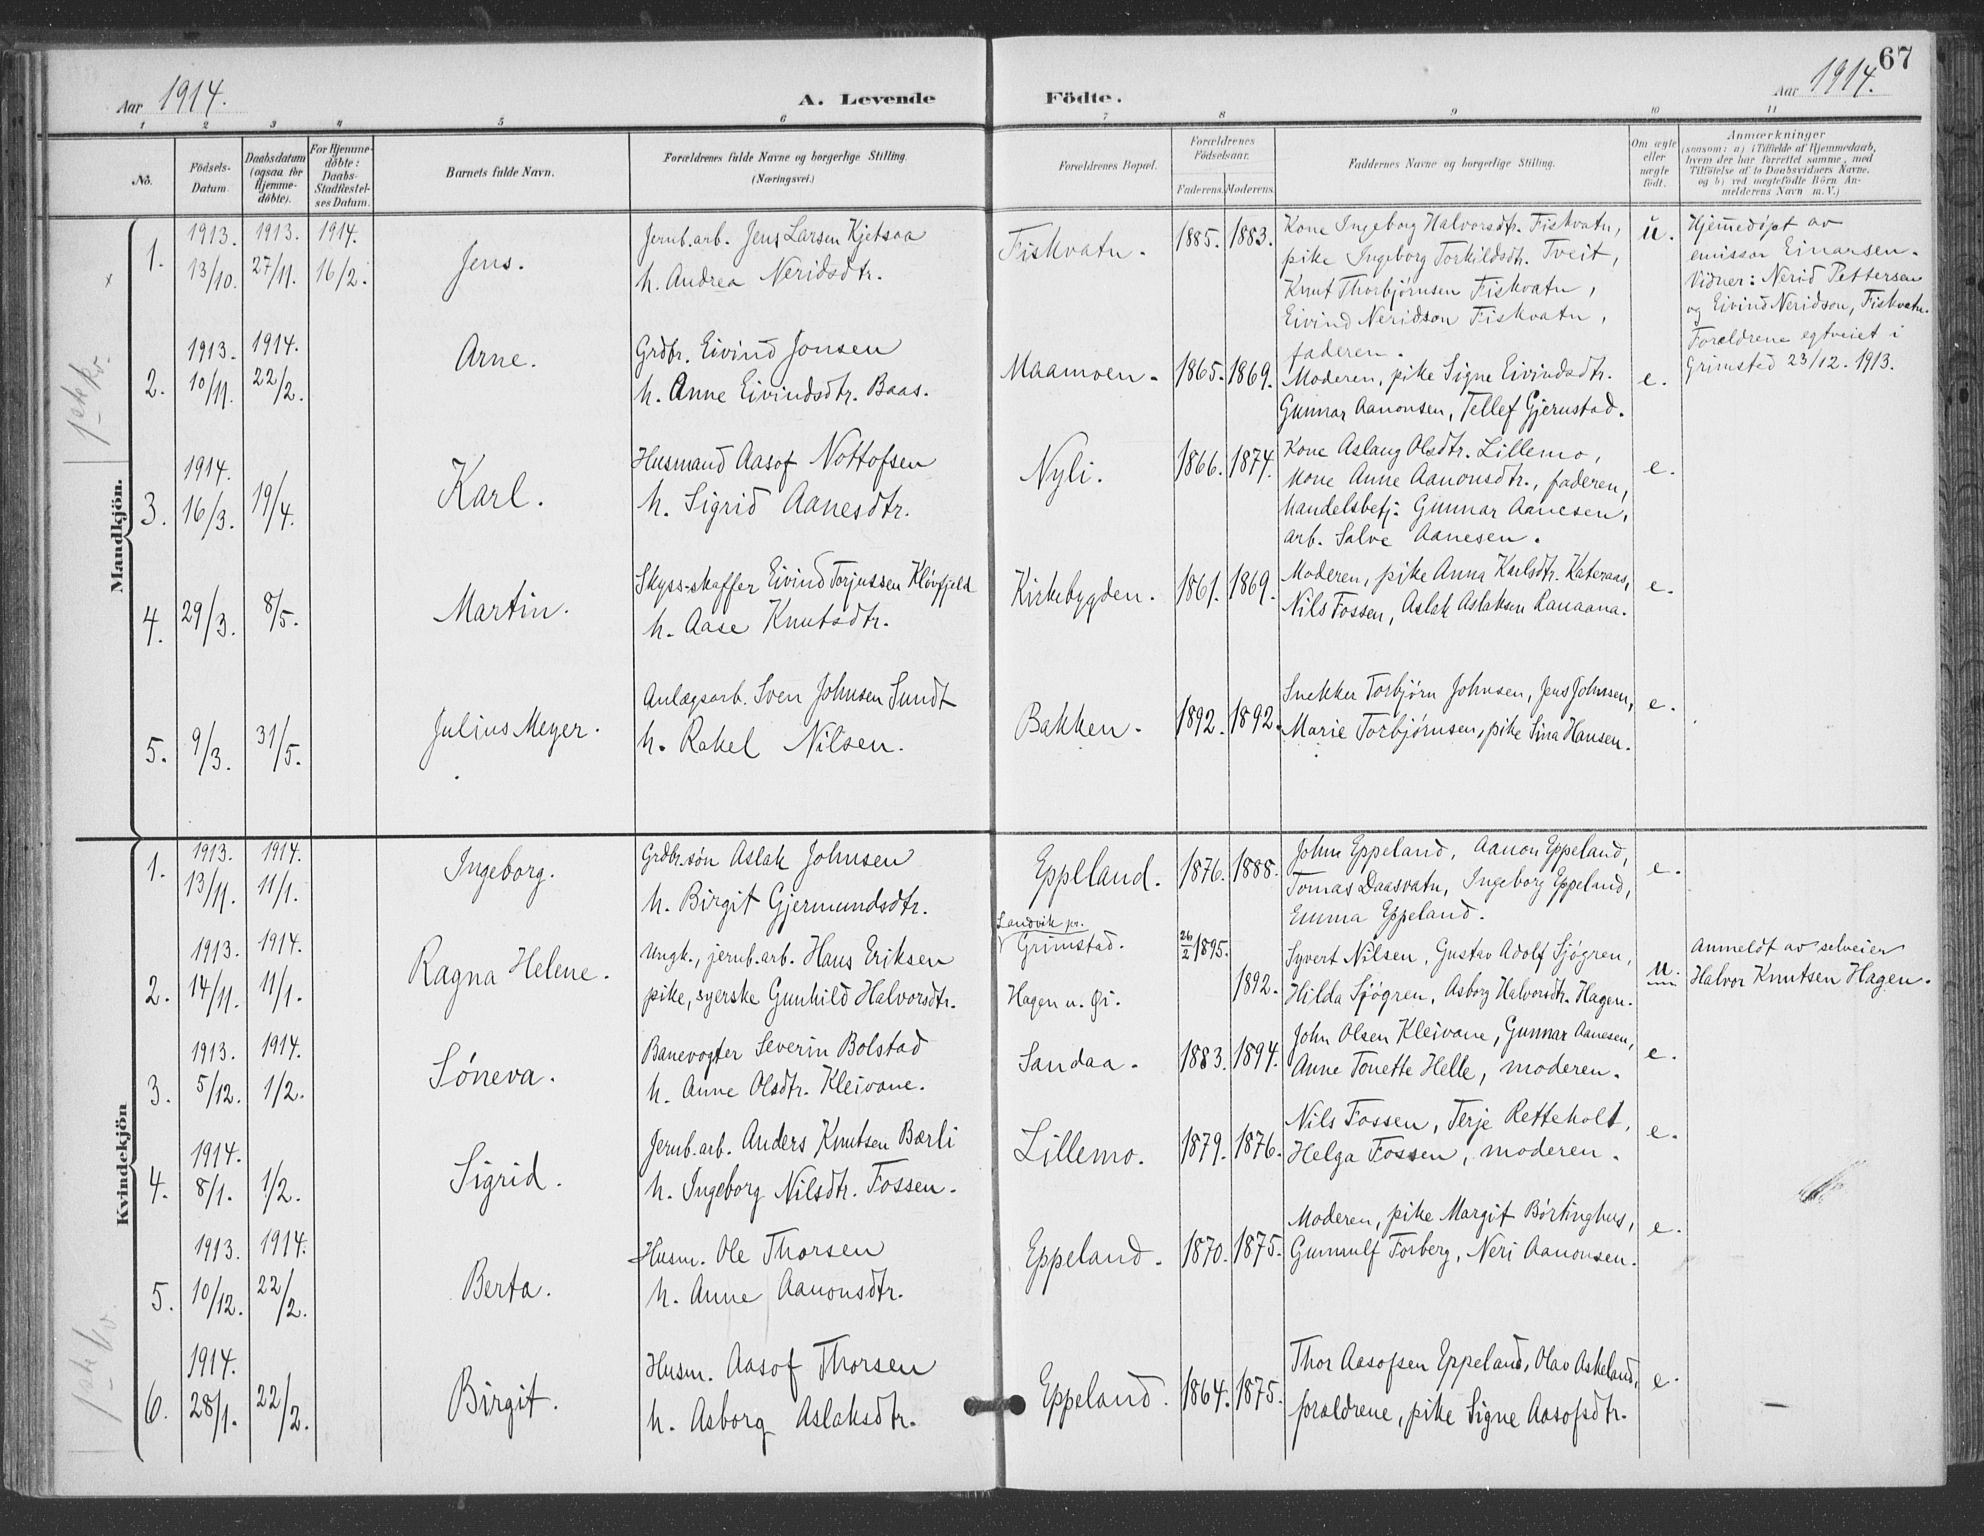 67
Aar 1914. A. Levende Födte. Aar 1914.
1 2 3 4 5 6 7 8 9 10 11
No.
Födsels-
Datum.
Daabsdatum
(ogsaa for
Hjemme-
döbte).
For Hjemme-
döbte:
Daabs-
Stadfæstel-
ses Datum.
Barnets fulde Navn.
Forældrenes fulde Navne og borgerlige Stilling.
(Næringsvei.)
Forældrenes Bopæl.
Forældrenes
Födselsaar.
Faderens. Moderens.
Faddernes Navne og borgerlige Stilling.
Om ægte
eller
uægte
födt.
Anmærkninger
(saasom: a) i Tilfælde af Hjemmedaab,
hvem der har forrettet samme, med
Tilföielse af to Daabsvidners Navne,
og b) ved uægtefödte Börn An-
melderens Navn m. V.)
Mandkjön.
1.
1913.
13/10.
1913.
27/11.
1914.
16/2.
Jens.
Jernb.arb. Jens Larsen Kjetsaa
h. Andrea Neridsdtr.
Fiskvatn.
1885. 1883.
Kone Ingeborg Halvorsdtr. Fiskvatn,
pike Ingeborg Torkildsdtr. Tveit,
Knut Thorbjørnsen Fiskvatn,
Eivind Neridson Fiskvatn,
faderen.
u.
Hjemedøpt av
emissør Einarsen.
Vidner: Nerid Pettersen
og Eivind Neridson, Fiskvatn.
Forældrene egtveiet i
Grimsted 23/12. 1913.
2.
1913.
10/11.
1914.
22/2.
Arne.
Grdbr. Eivind Jonsen
h. Anne Eivindsdtr. Baas.
Maamoen.
1865. 1869.
Moderen, pike Signe Eivindsdtr.
Gunnar Aanonsen, Tellef Gjerustad.
e.
3.
1914.
16/3.
19/4.
Karl.
Husmand Aasof Nottofsen
h. Sigrid Aanesdtr.
Nyli.
1866. 1874.
Kone Aslaug Olsdtr. Lillemo,
kone Anne Aanonsdtr., faderen,
handelsbetj. Gunnar Aanesen,
arb. Salve Aanesen.
e.
4.
29/3.
8/5.
Martin.
Skyss-skaffer Eivind Torjussen Kløvfjeld
h. Aase Knutsdtr.
Kirkebygden.
1861. 1869.
Moderen, pike Anna Karlsdtr. Kateraas,
Nils Fossen, Aslak Aslaksen Ranaana.
e.
5.
9/3.
31/5.
Julius Meyer.
Anlægsarb. Sven Johnsen Sundt
h. Rakel Nilsen.
Bakken.
1892. 1892.
Snekker Torbjørn Johnsen, Jens Johnsen,
Marie Torbjørnsen, pike Sina Hansen.
e.
Kvindekjön
1.
1913.
13/11.
1914.
11/1.
Ingeborg.
Grdbr.søn Aslak Johnsen
h. Birgit Gjermundsdtr.
Eppeland.
1876. 1888.
John Eppeland, Aanon Eppeland,
Tomas Daasvatn, Ingeborg Eppeland,
Emma Eppeland.
e.
2.
1913.
14/11.
1914.
11/1.
Ragna Helene.
Ungk., jernb.arb. Hans Eriksen
pike, syerske Gunhild Halvorsdtr.
Landvik pr.
Grimstad.
Hagen u. Øi.
26/2 1895.
1892.
Syvert Nilsen, Gustav Adolf Sjøgren,
Hilda Sjøgren, Asborg Halvorsdtr. Hagen.
u.
Anmeldt av selveier
Halvor Knutsen Hagen.
3.
1913.
5/12.
1914.
1/2.
Søneva.
Banevogter Severin Bolstad
h. Anne Olsdtr. Kleivane.
Sandaa.
1883. 1894.
John Olsen Kleivane, Gunnar Aanesen,
Anne Tonette Helle, moderen.
e.
4.
1914.
8/1.
1/2.
Sigrid.
Jernb.arb. Anders Knutsen Bærli
h. Ingeborg Nilsdtr. Fossen.
Lillemo.
1879. 1876.
Nils Fossen, Terje Retteholt,
Helga Fossen, moderen.
e.
5.
1913.
10/12.
1914.
22/2.
Berta.
Husm. Ole Thorsen
h. Anne Aanonsdtr.
Eppeland.
1870. 1875.
Moderen, pike Margit Børtinghus,
Gunnulf Forberg, Neri Aanonsen.
e.
6.
1914.
28/1.
22/2.
Birgit.
Husm. Aasof Thorsen
h. Asborg Aslaksdtr.
Eppeland.
1864. 1875.
Thor Aasofsen Eppeland, Olav Askeland,
foraldrene, pike Signe Aasofsdtr.
e.